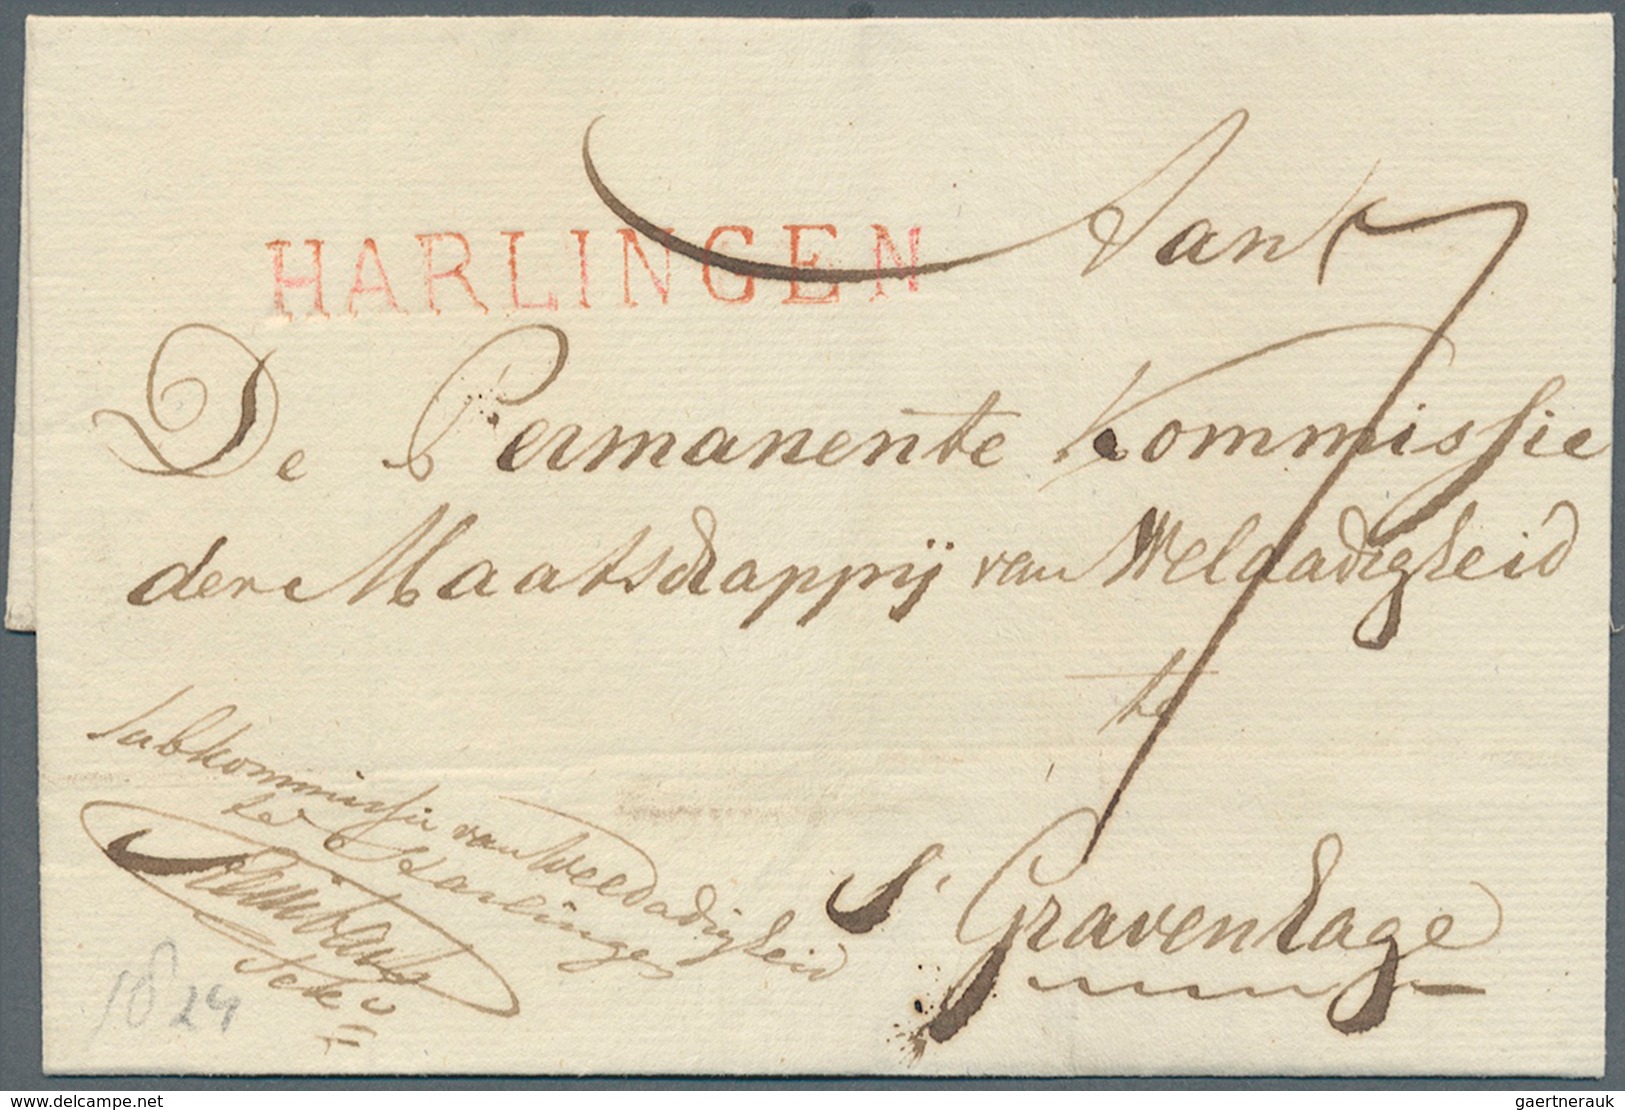 HARLINGEN
Aan
7
De Permanente Kommissie
der Maatschappij van Weldadigheid
te
s' Gravenhage
Subkommissie van Weldadigheid
te Harlingen
Sekr
1824
www.delcampe.net
gaertnerauk